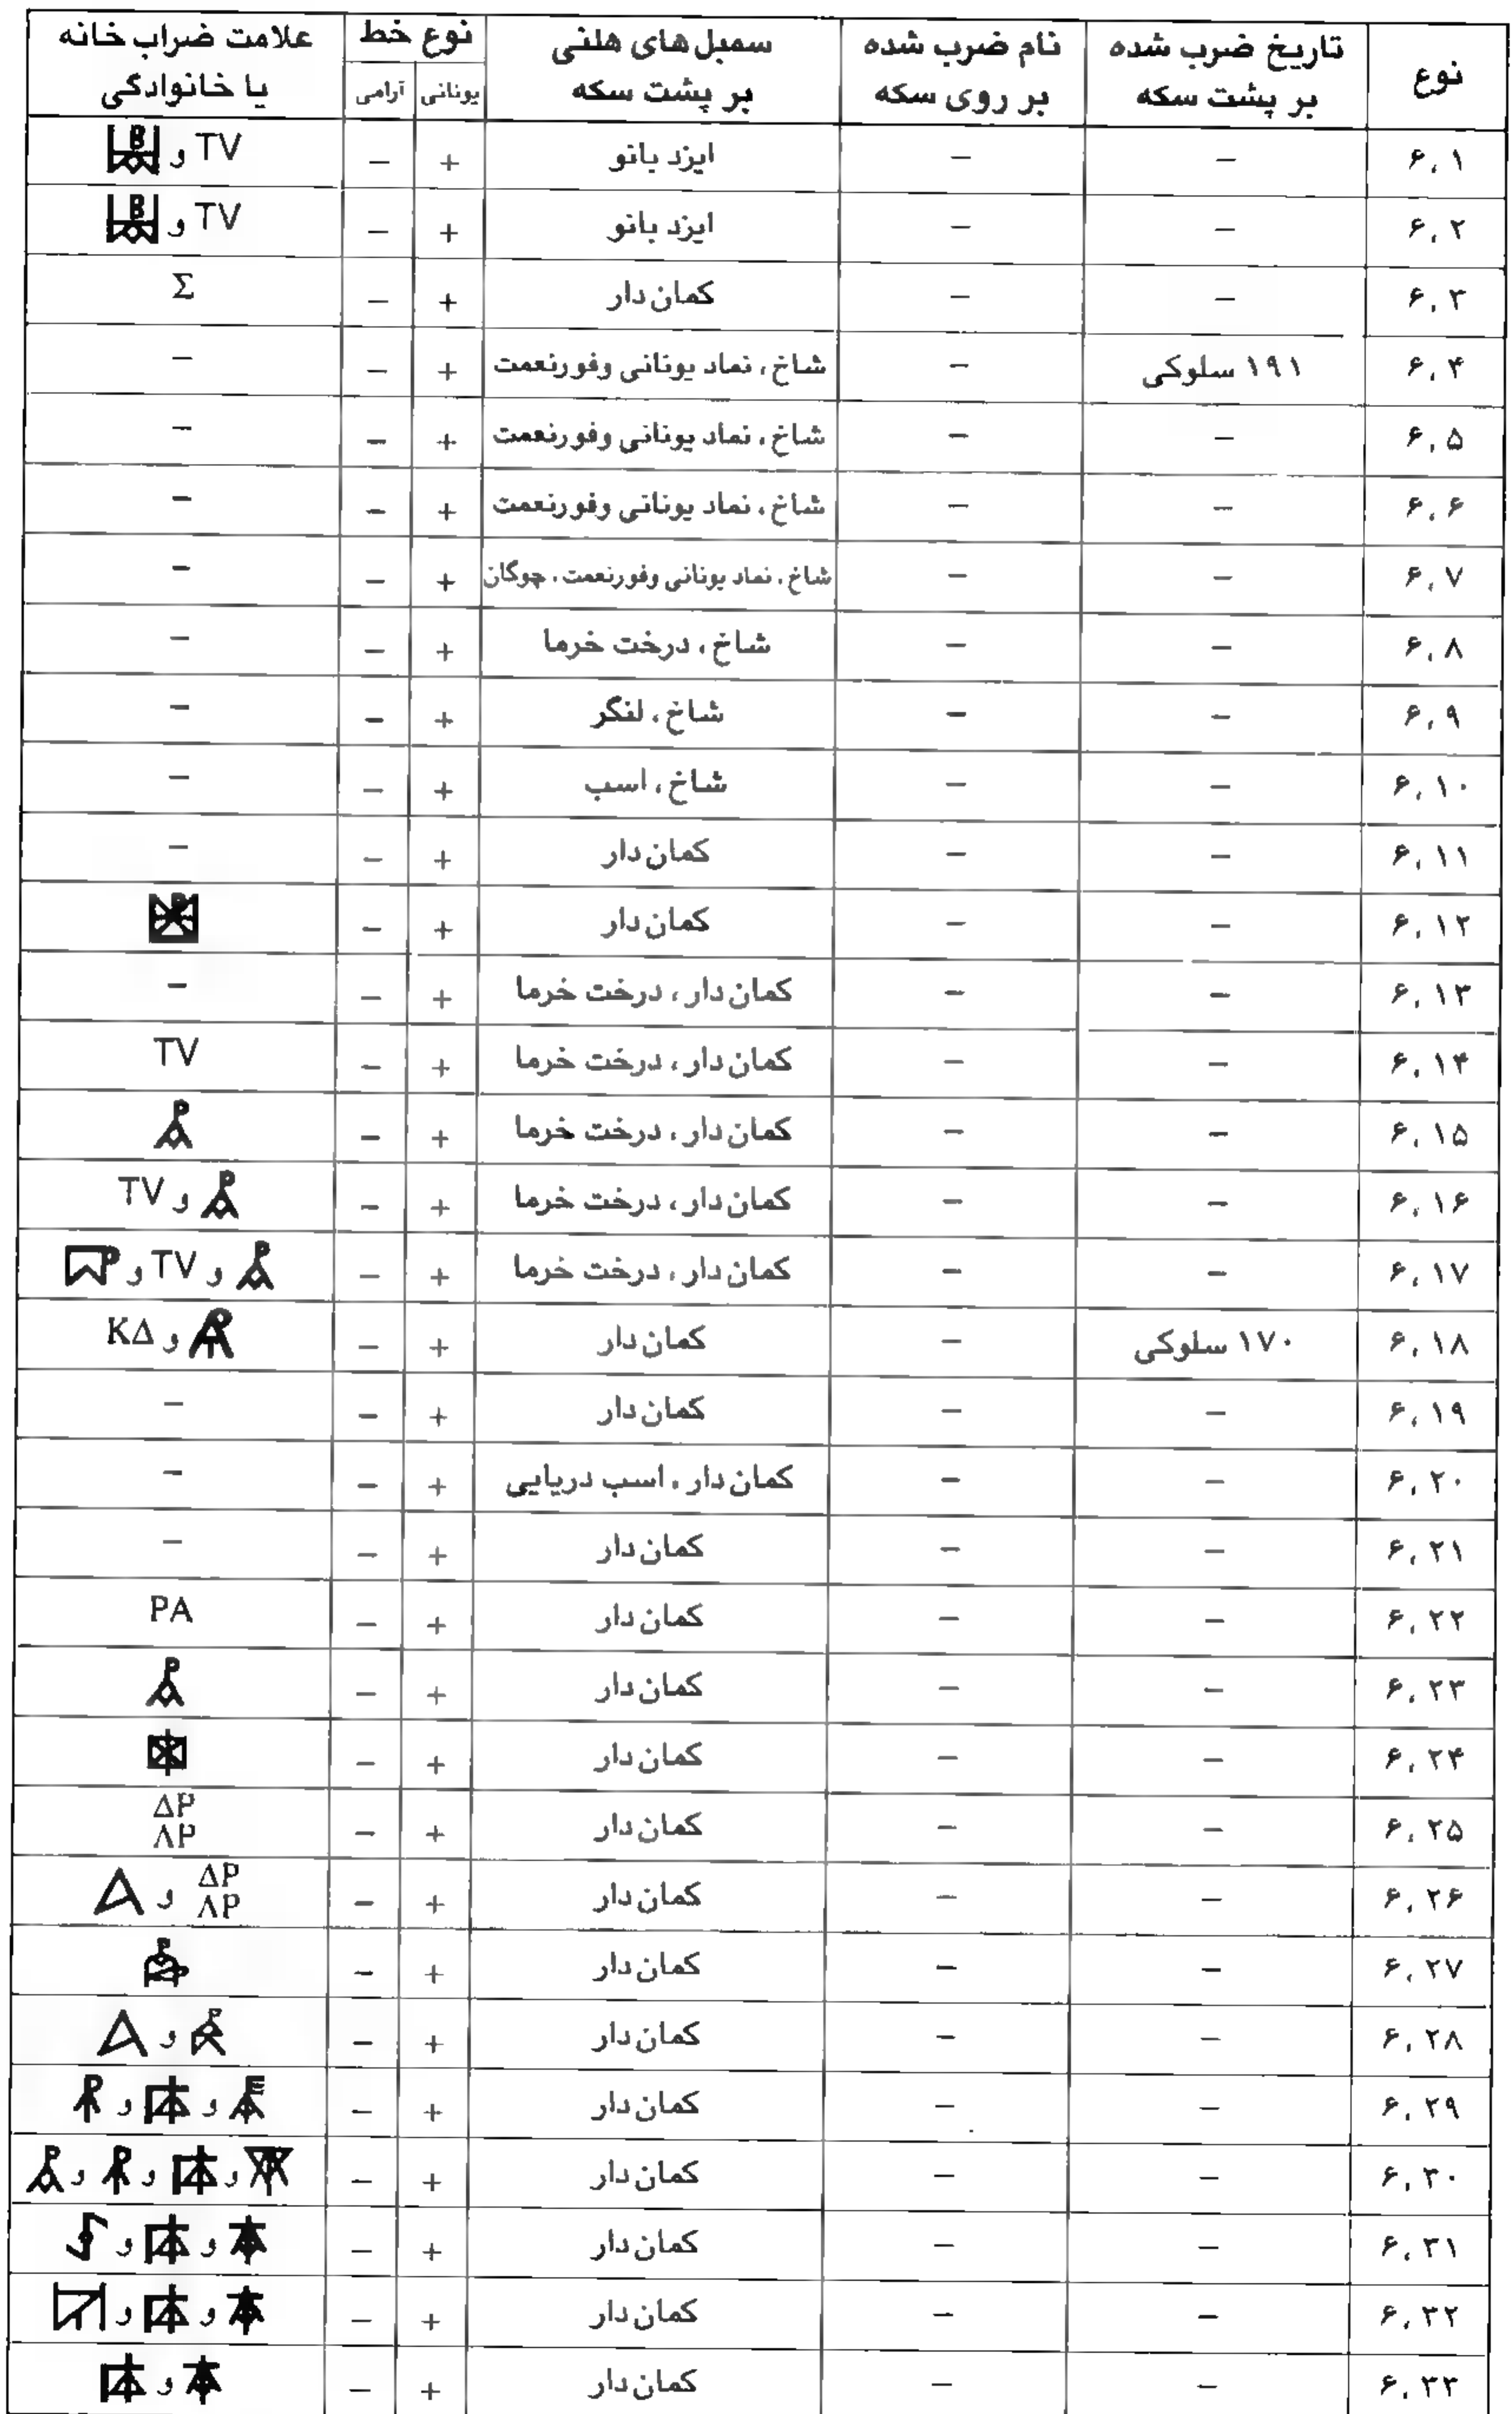 نوع | تاریخ ضرب شده بر پشت سکه | نام ضرب شده بر روی سکه | سمبل های هلنی بر پشت سکه | نوع خط | علامت ضراب خانه یا خانوادگی
یونانی | آرامی
۶،۱ | – | – | ایزد بانو | + | – | TV و
۶،۲ | – | – | ایزد بانو | + | – | TV و
۶،۳ | – | – | کمان دار | + | – | Σ
۶،۴ | ۱۹۱ سلوکی | – | شاخ، نماد یونانی وفورنعمت | + | – | –
۶،۵ | – | – | شاخ، نماد یونانی وفورنعمت | + | – | –
۶،۶ | – | – | شاخ، نماد یونانی وفورنعمت | + | – | –
۶،۷ | – | – | شاخ، نماد یونانی وفورنعمت، چوگان | + | – | –
۶،۸ | – | – | شاخ، درخت خرما | + | – | –
۶،۹ | – | – | شاخ، لنگر | + | – | –
۶،۱۰ | – | – | شاخ، اسب | + | – | –
۶،۱۱ | – | – | کمان دار | + | – | –
۶،۱۲ | – | – | کمان دار | + | –
۶،۱۳ | – | – | کمان دار، درخت خرما | + | – | –
۶،۱۴ | – | – | کمان دار، درخت خرما | + | – | TV
۶،۱۵ | – | – | کمان دار، درخت خرما | + | –
۶،۱۶ | – | – | کمان دار، درخت خرما | + | – | و TV
۶،۱۷ | – | – | کمان دار، درخت خرما | + | – | و TV و
۶،۱۸ | ۱۷۰ سلوکی | – | کمان دار | + | – | و ΚΔ
۶،۱۹ | – | – | کمان دار | + | – | –
۶،۲۰ | – | – | کمان دار، اسب دریایی | + | – | –
۶،۲۱ | – | – | کمان دار | + | – | –
۶،۲۲ | – | – | کمان دار | + | – | PA
۶،۲۳ | – | – | کمان دار | + | –
۶،۲۴ | – | – | کمان دار | + | –
۶،۲۵ | – | – | کمان دار | + | – | ΔΡ ΛΡ
۶،۲۶ | – | – | کمان دار | + | – | ΔΡ ΛΡ و
۶،۲۷ | – | – | کمان دار | + | –
۶،۲۸ | – | – | کمان دار | + | – | و
۶،۲۹ | – | – | کمان دار | + | – | و و
۶،۳۰ | – | – | کمان دار | + | – | و و و
۶،۳۱ | – | – | کمان دار | + | – | و و
۶،۳۲ | – | – | کمان دار | + | – | و و
۶،۳۳ | – | – | کمان دار | + | – | و